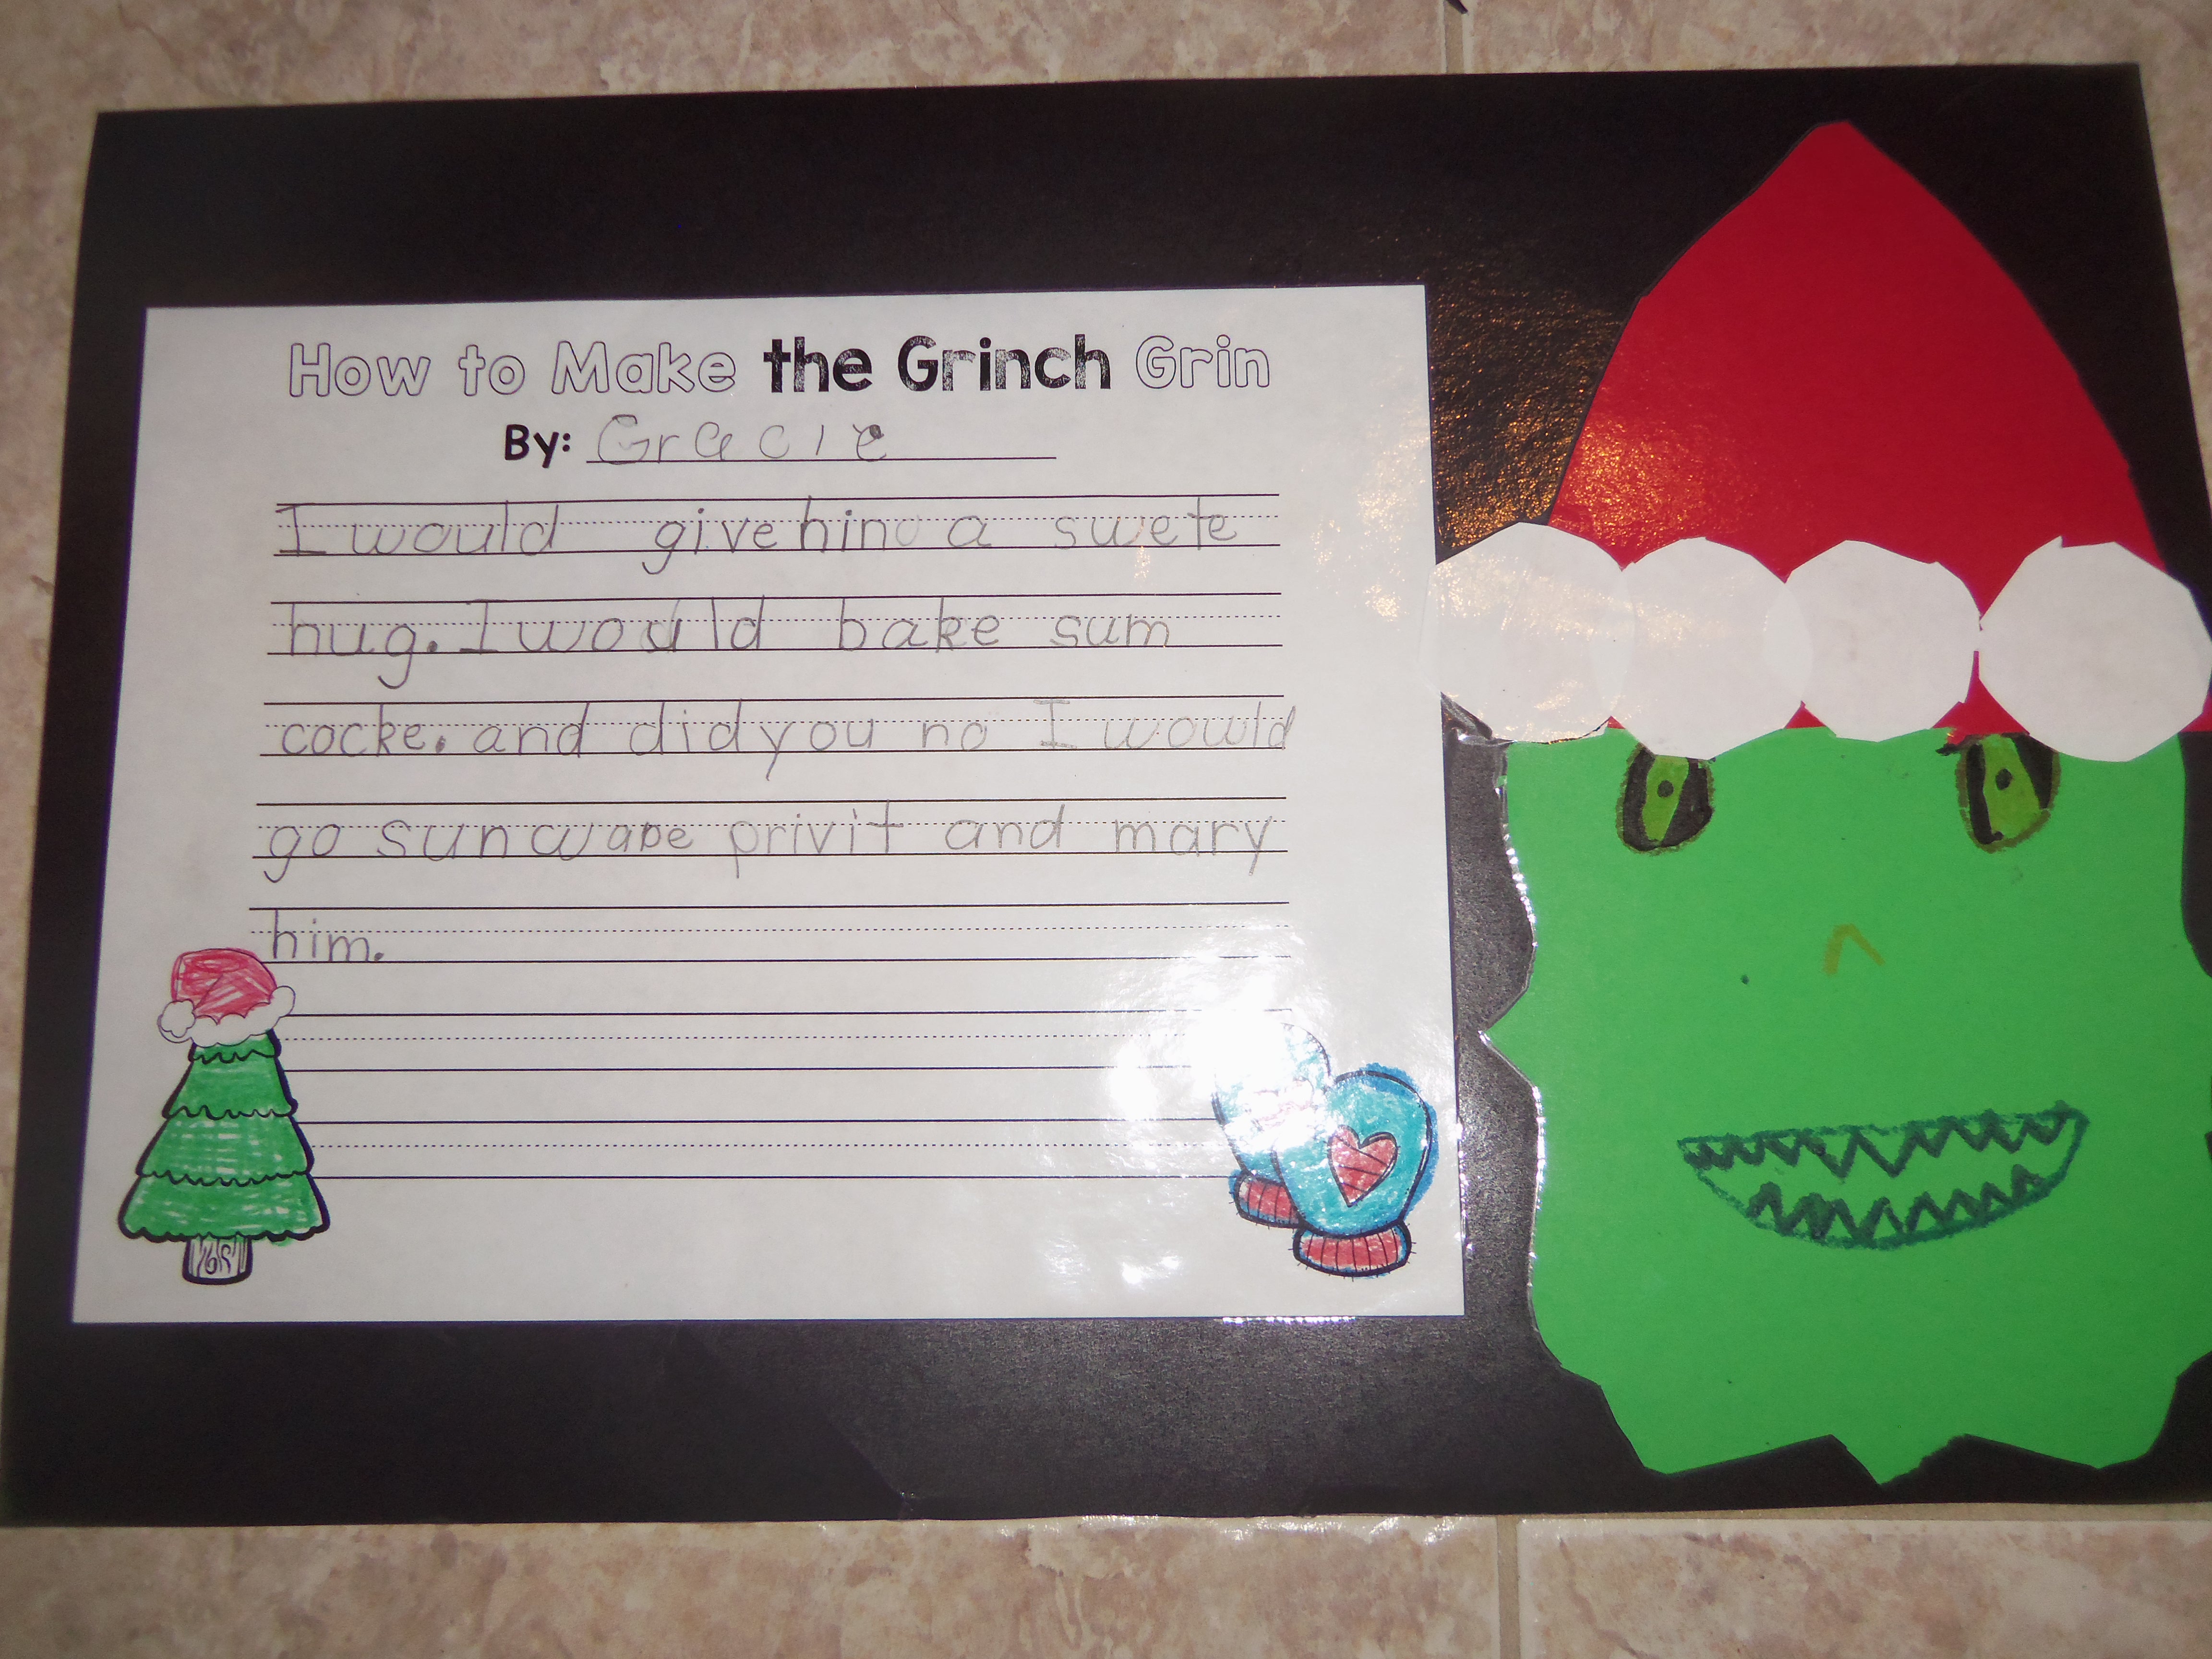 How to Make the Grinch Grin
By: Gracie
I would give him a swete
hug. I would bake sum
cocke. and did you no I wowld
go sunwape privit and mary
him.